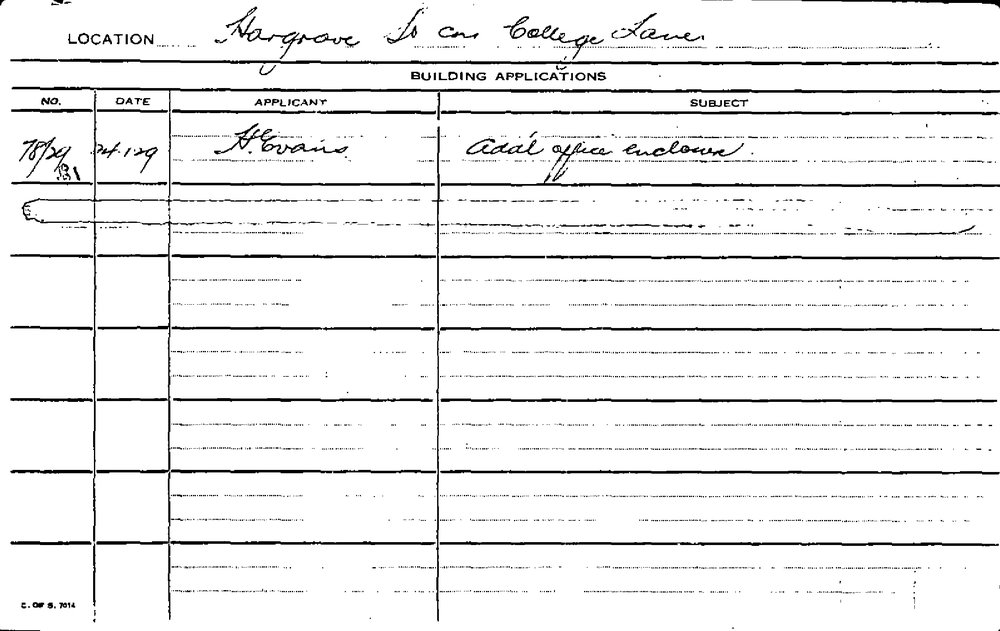 LOCATION Hargrave St cnr College Lane
BUILDING APPLICATIONS
NO. DATE APPLICANT SUBJECT
78/29 24.1.29 H. Evans. Addl office enclosure
C. OF S. 7014